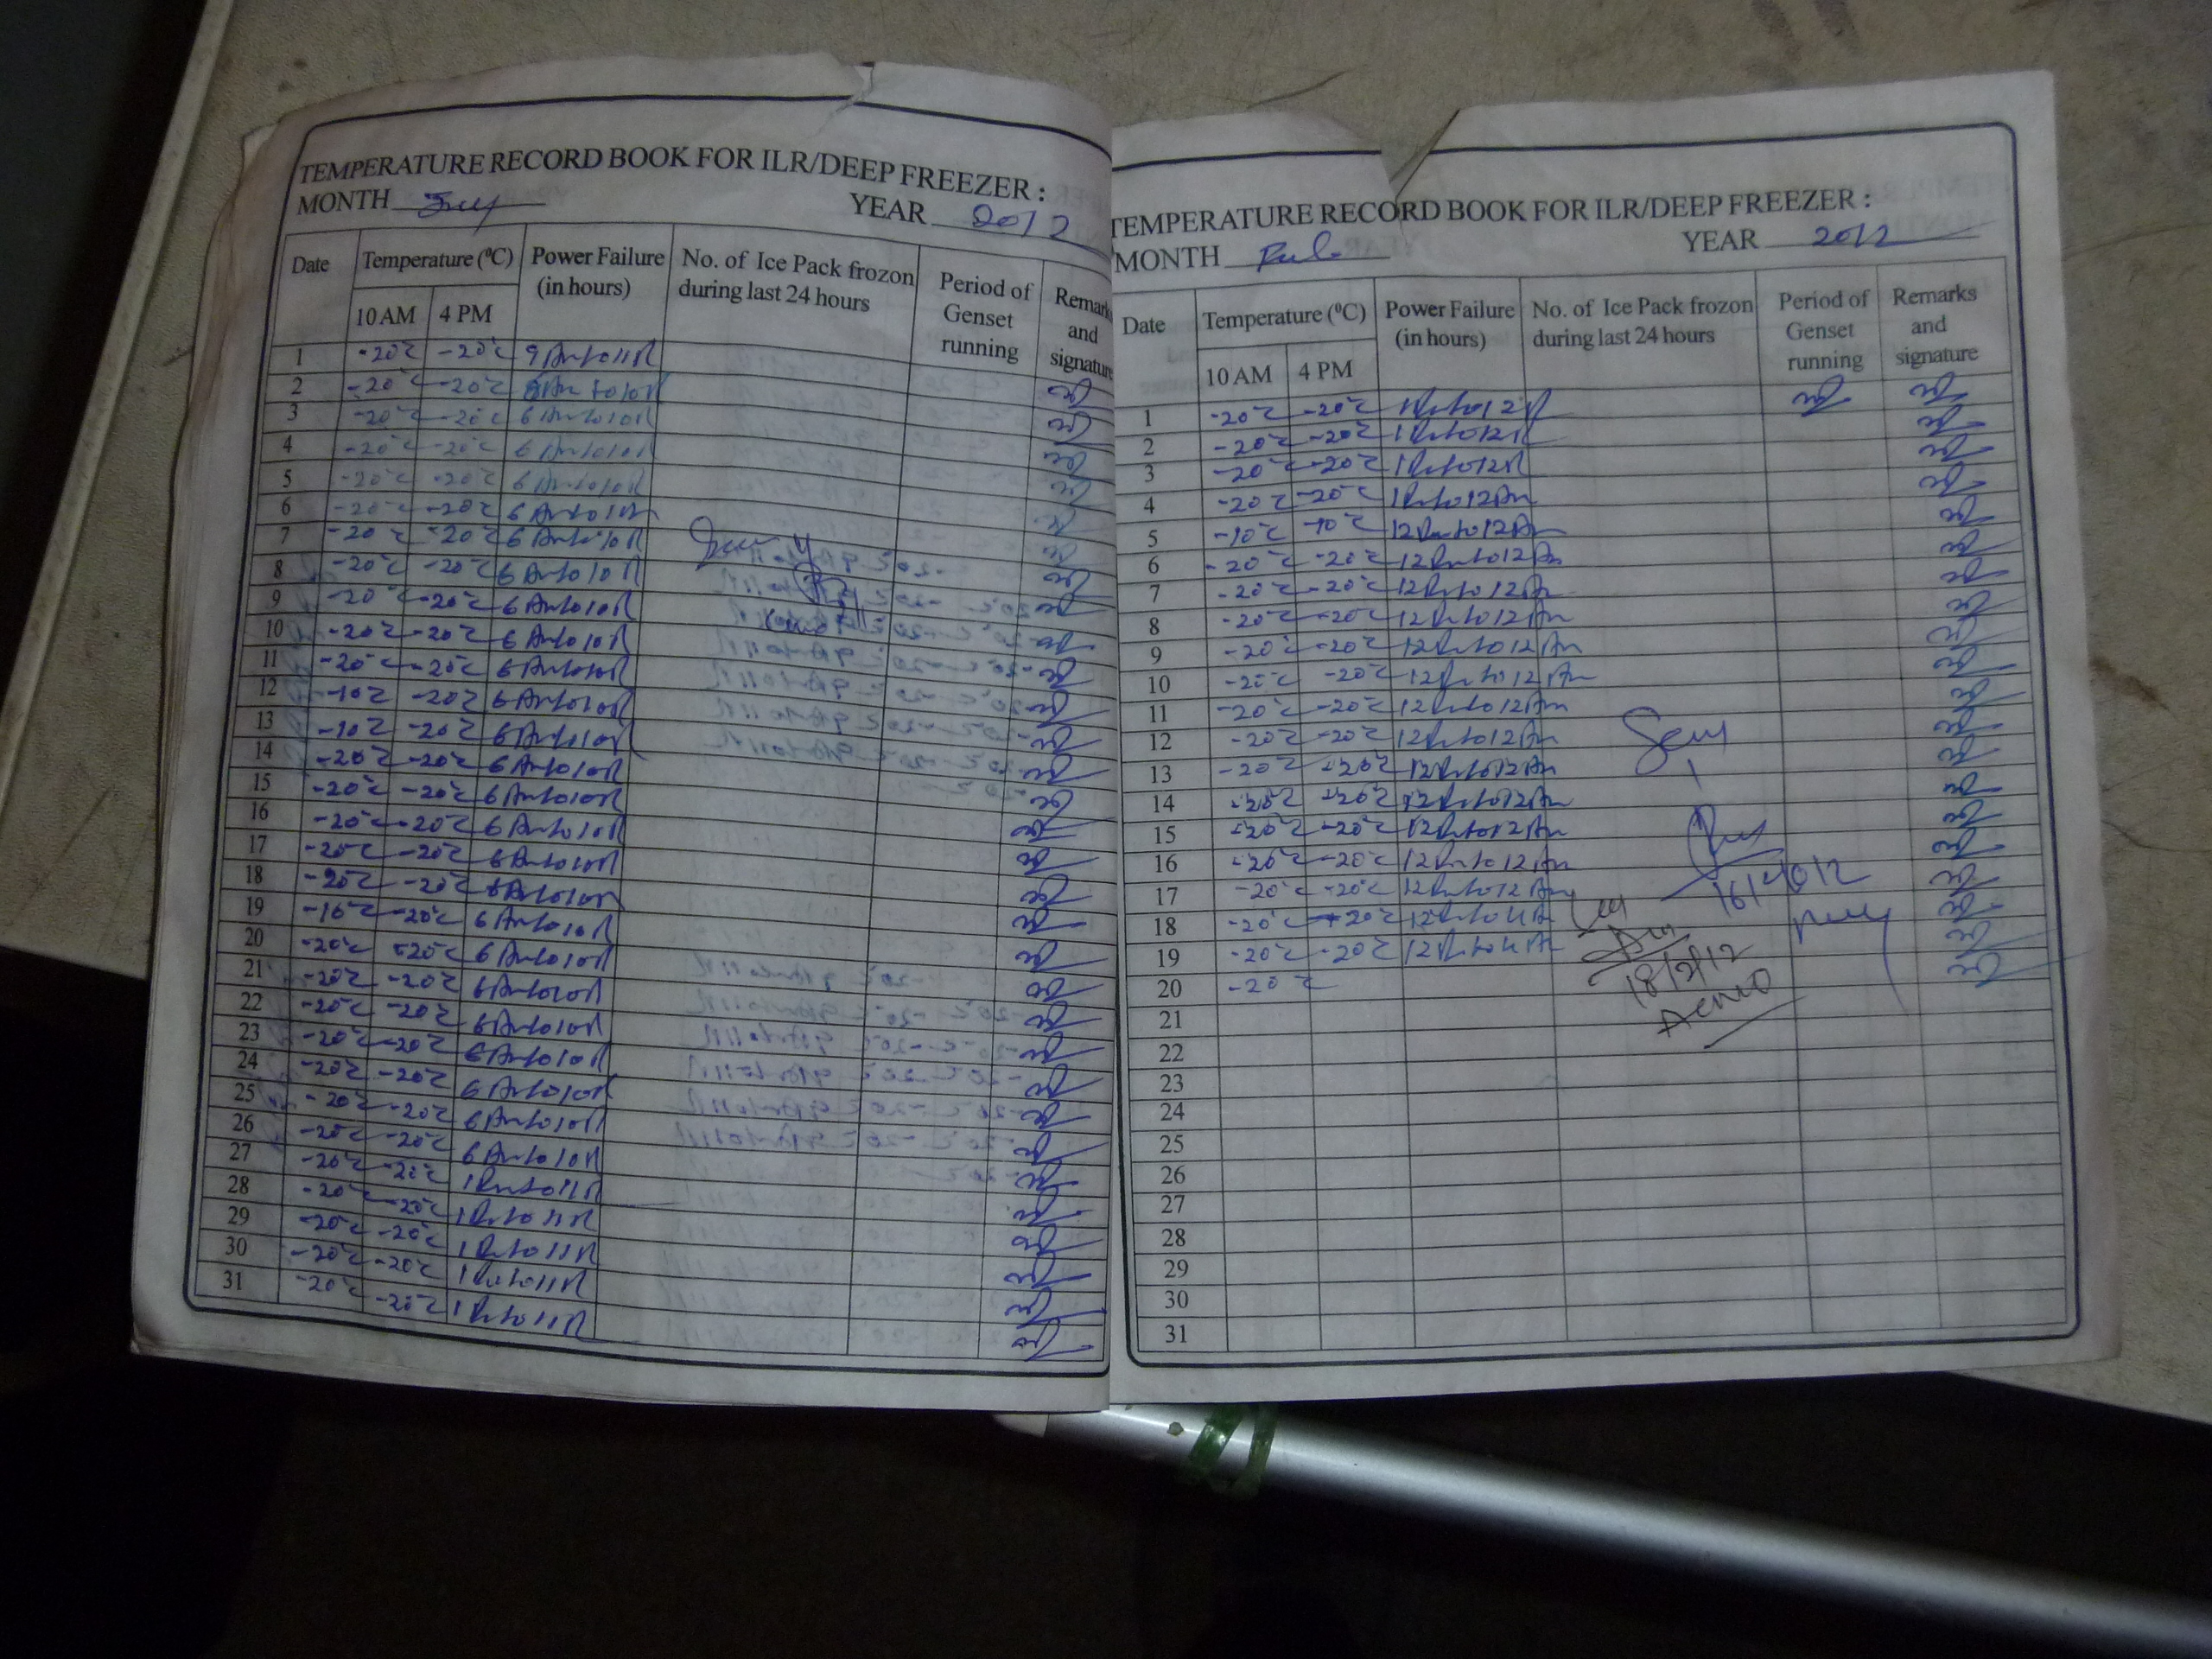 TEMPERATURE RECORD BOOK FOR ILR/DEEP FREEZER :
MONTH YEAR 2012
Date Temperature (⁰C) Power Failure (in hours) No. of Ice Pack frozon during last 24 hours Period of Genset running Remarks and signature
10 AM 4 PM
1 -20°c -20°c 9 Am to 11 P
2 -20°c -20°c
3 -20°c -20°c 6 Am to 10 P
4 -20°c -20°c 6 Am to 10 P
5 -20°c -20°c 6 Am to 10 P
6 -20°c -20°c 6 Am to 10
7 -20°c -20°c 6 Am to 10 P
8 -20°c -20°c 6 Am to 10 P
9 -20°c -20°c 6 Am to 10 P
10 -20°c -20°c 6 Am to 10 P
11 -20°c -20°c 6 Am to 10 P
12 -10°c -20°c 6 Am to 10 P
13 -10°c -20°c 6 Am to 10 P
14 -20°c -20°c 6 Am to 10 P
15 -20°c -20°c 6 Am to 10 P
16 -20°c -20°c 6 Am to 10 P
17 -20°c -20°c 6 Am to 10 P
18 -20°c -20°c 6 Am to 10 P
19 -20°c 6 Am to 10 P
20 -20°c -20°c 6 Am to 10 P
21 -20°c -20°c 6 Am to 10 P
22 -20°c -20°c 6 Am to 10 P
23 -20°c -20°c 6 Am to 10 P
24 -20°c -20°c 6 Am to 10 P
25 -20°c -20°c 6 Am to 10 P
26 -20°c -20°c 6 Am to 10 P
27 -20°c -20°c 1 Pm to 11 P
28 -20°c -20°c 1 Pm to 11 P
29 -20°c -20°c 1 Pm to 11 P
30 -20°c -20°c 1 Pm to 11 P
31 -20°c -20°c 1 Pm to 11 P
TEMPERATURE RECORD BOOK FOR ILR/DEEP FREEZER :
MONTH YEAR 2012
Date Temperature (⁰C) Power Failure (in hours) No. of Ice Pack frozon during last 24 hours Period of Genset running Remarks and signature
10 AM 4 PM
1 -20°c -20°c 1 Pm to 12 P
2 -20°c -20°c 1 Pm to 12 P
3 -20°c -20°c 1 Pm to 12 P
4 -20°c -20°c 1 Pm to 12 Am
5 -10°c -10°c 12 Pm to 12 Am
6 -20°c -20°c 12 Pm to 12 Am
7 -20°c -20°c 12 Pm to 12 Am
8 -20°c -20°c 12 Pm to 12 Am
9 -20°c -20°c 12 Pm to 12 Am
10 -20°c -20°c 12 Pm to 12 Am
11 -20°c -20°c 12 Pm to 12 Am
12 -20°c -20°c 12 Pm to 12 Am
13 -20°c -20°c 12 Pm to 12 Am
14 -20°c -20°c 12 Pm to 12 Am
15 -20°c -20°c 12 Pm to 12 Am
16 -20°c -20°c 12 Pm to 12 Am
17 -20°c -20°c 12 Pm to 12 Am
18 -20°c -20°c 12 Pm to 4 Am
19 -20°c -20°c 12 Pm to 4 Am
20 -20°c
21
22
23
24
25
26
27
28
29
30
31
18/2/12